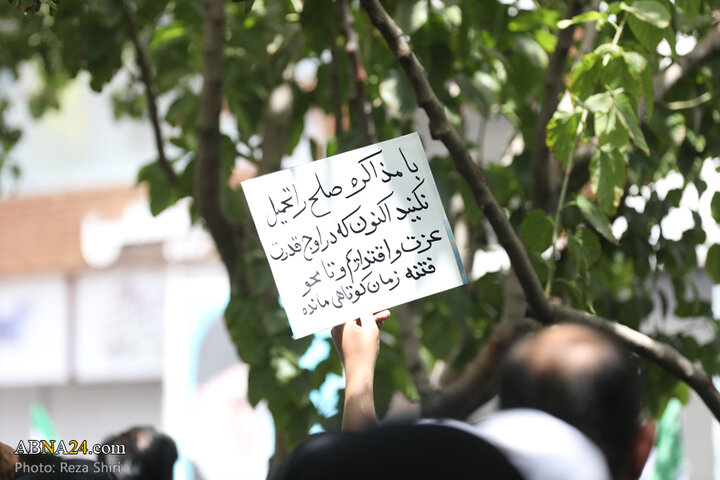 با مذاکره صلح را تحمیل
نکنید اکنون که در اوج قدرت
عزت و اقتداریم و تا محو
فتنه زمان کوتاهی مانده
ABNA24.com
Photo: Reza Shiri